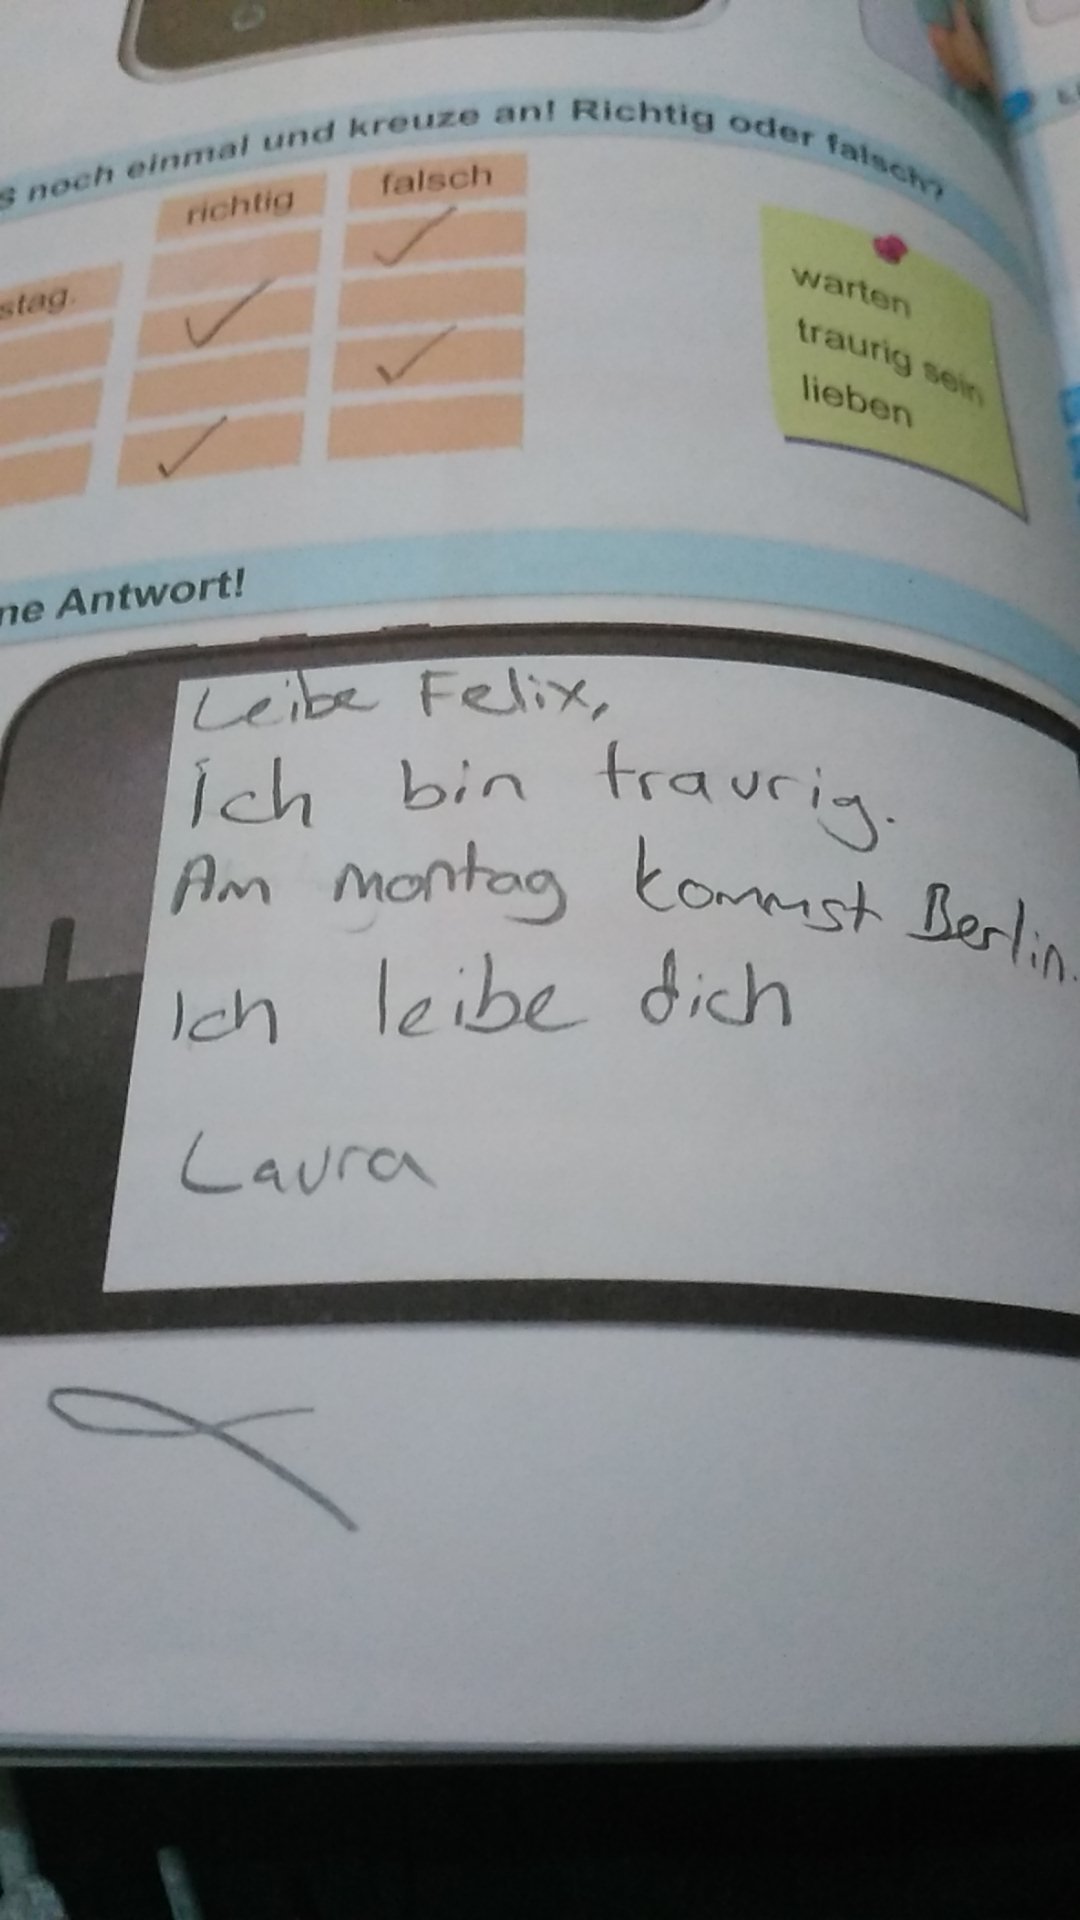 noch einmal und kreuze an! Richtig oder falsch?
richtig falsch
stag.
warten
traurig sein
lieben
ne Antwort!
Leibe Felix,
Ich bin traurig.
Am montag kommst Berlin.
Ich leibe dich
Laura